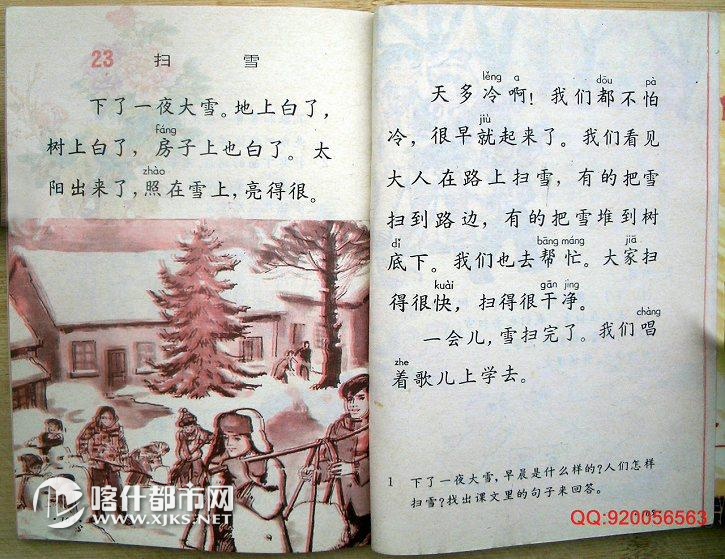 23 扫 雪
下了一夜大雪。地上白了，
fáng
树上白了，房子上也白了。太
zhào
阳出来了，照在雪上，亮得很。
喀什都市网
WWW.XJKS.NET
lěng a dōu pà
天多冷啊！我们都不怕
jiù
冷，很早就起来了。我们看见
大人在路上扫雪，有的把雪
扫到路边，有的把雪堆到树
dǐ bāng máng jiā
底下。我们也去帮忙。大家扫
kuài gān jìng
得很快，扫得很干净。
chàng
一会儿，雪扫完了。我们唱
zhe
着歌儿上学去。
1 下了一夜大雪，早晨是什么样的？人们怎样
扫雪？找出课文里的句子来回答。
QQ:920056563